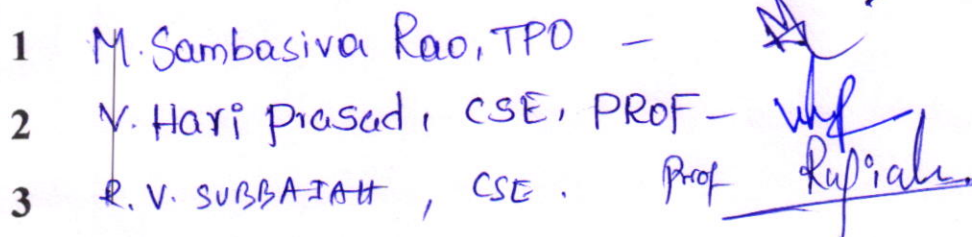 1 M. Sambasiva Rao, TPO -
2 V. Hari Prasad, CSE, PROF -
3 R. V. SUBBAIAH, CSE. Prof